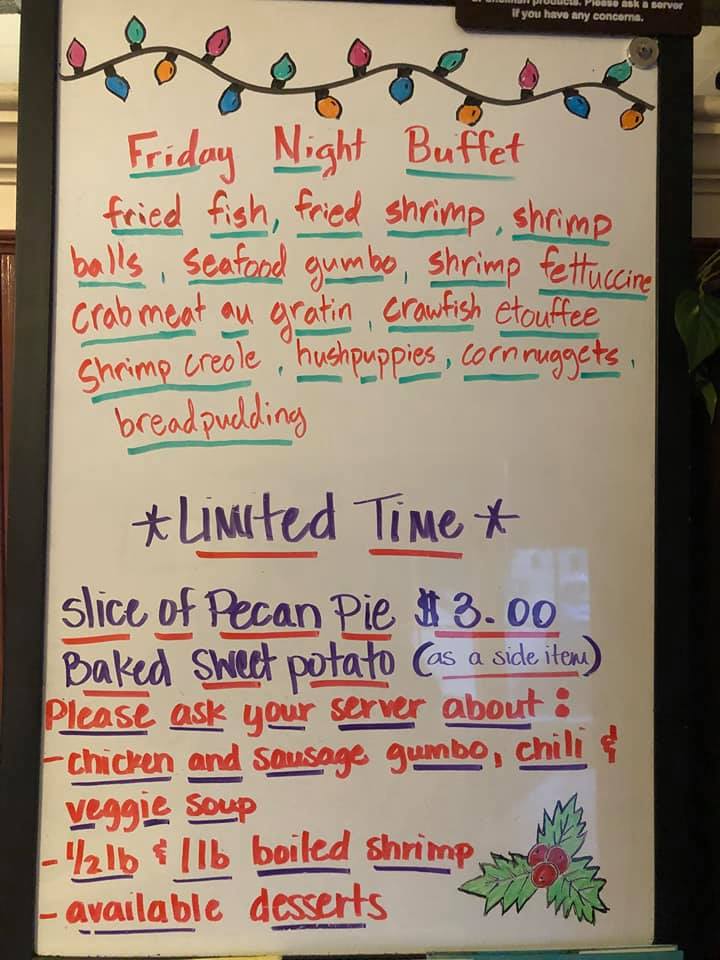 or shellfish products. Please ask a server
if you have any concerns.
Friday Night Buffet
fried fish, fried shrimp, shrimp
balls, seafood gumbo, shrimp fettuccine
Crabmeat au gratin, crawfish etouffee
Shrimp creole, hushpuppies, cornnuggets,
breadpudding
*Limited Time*
Slice of Pecan Pie $3.00
Baked Sweet potato (as a side item)
Please ask your server about:
- chicken and sausage gumbo, chili &
veggie soup
- 1/2 lb & 1 lb boiled shrimp
- available desserts